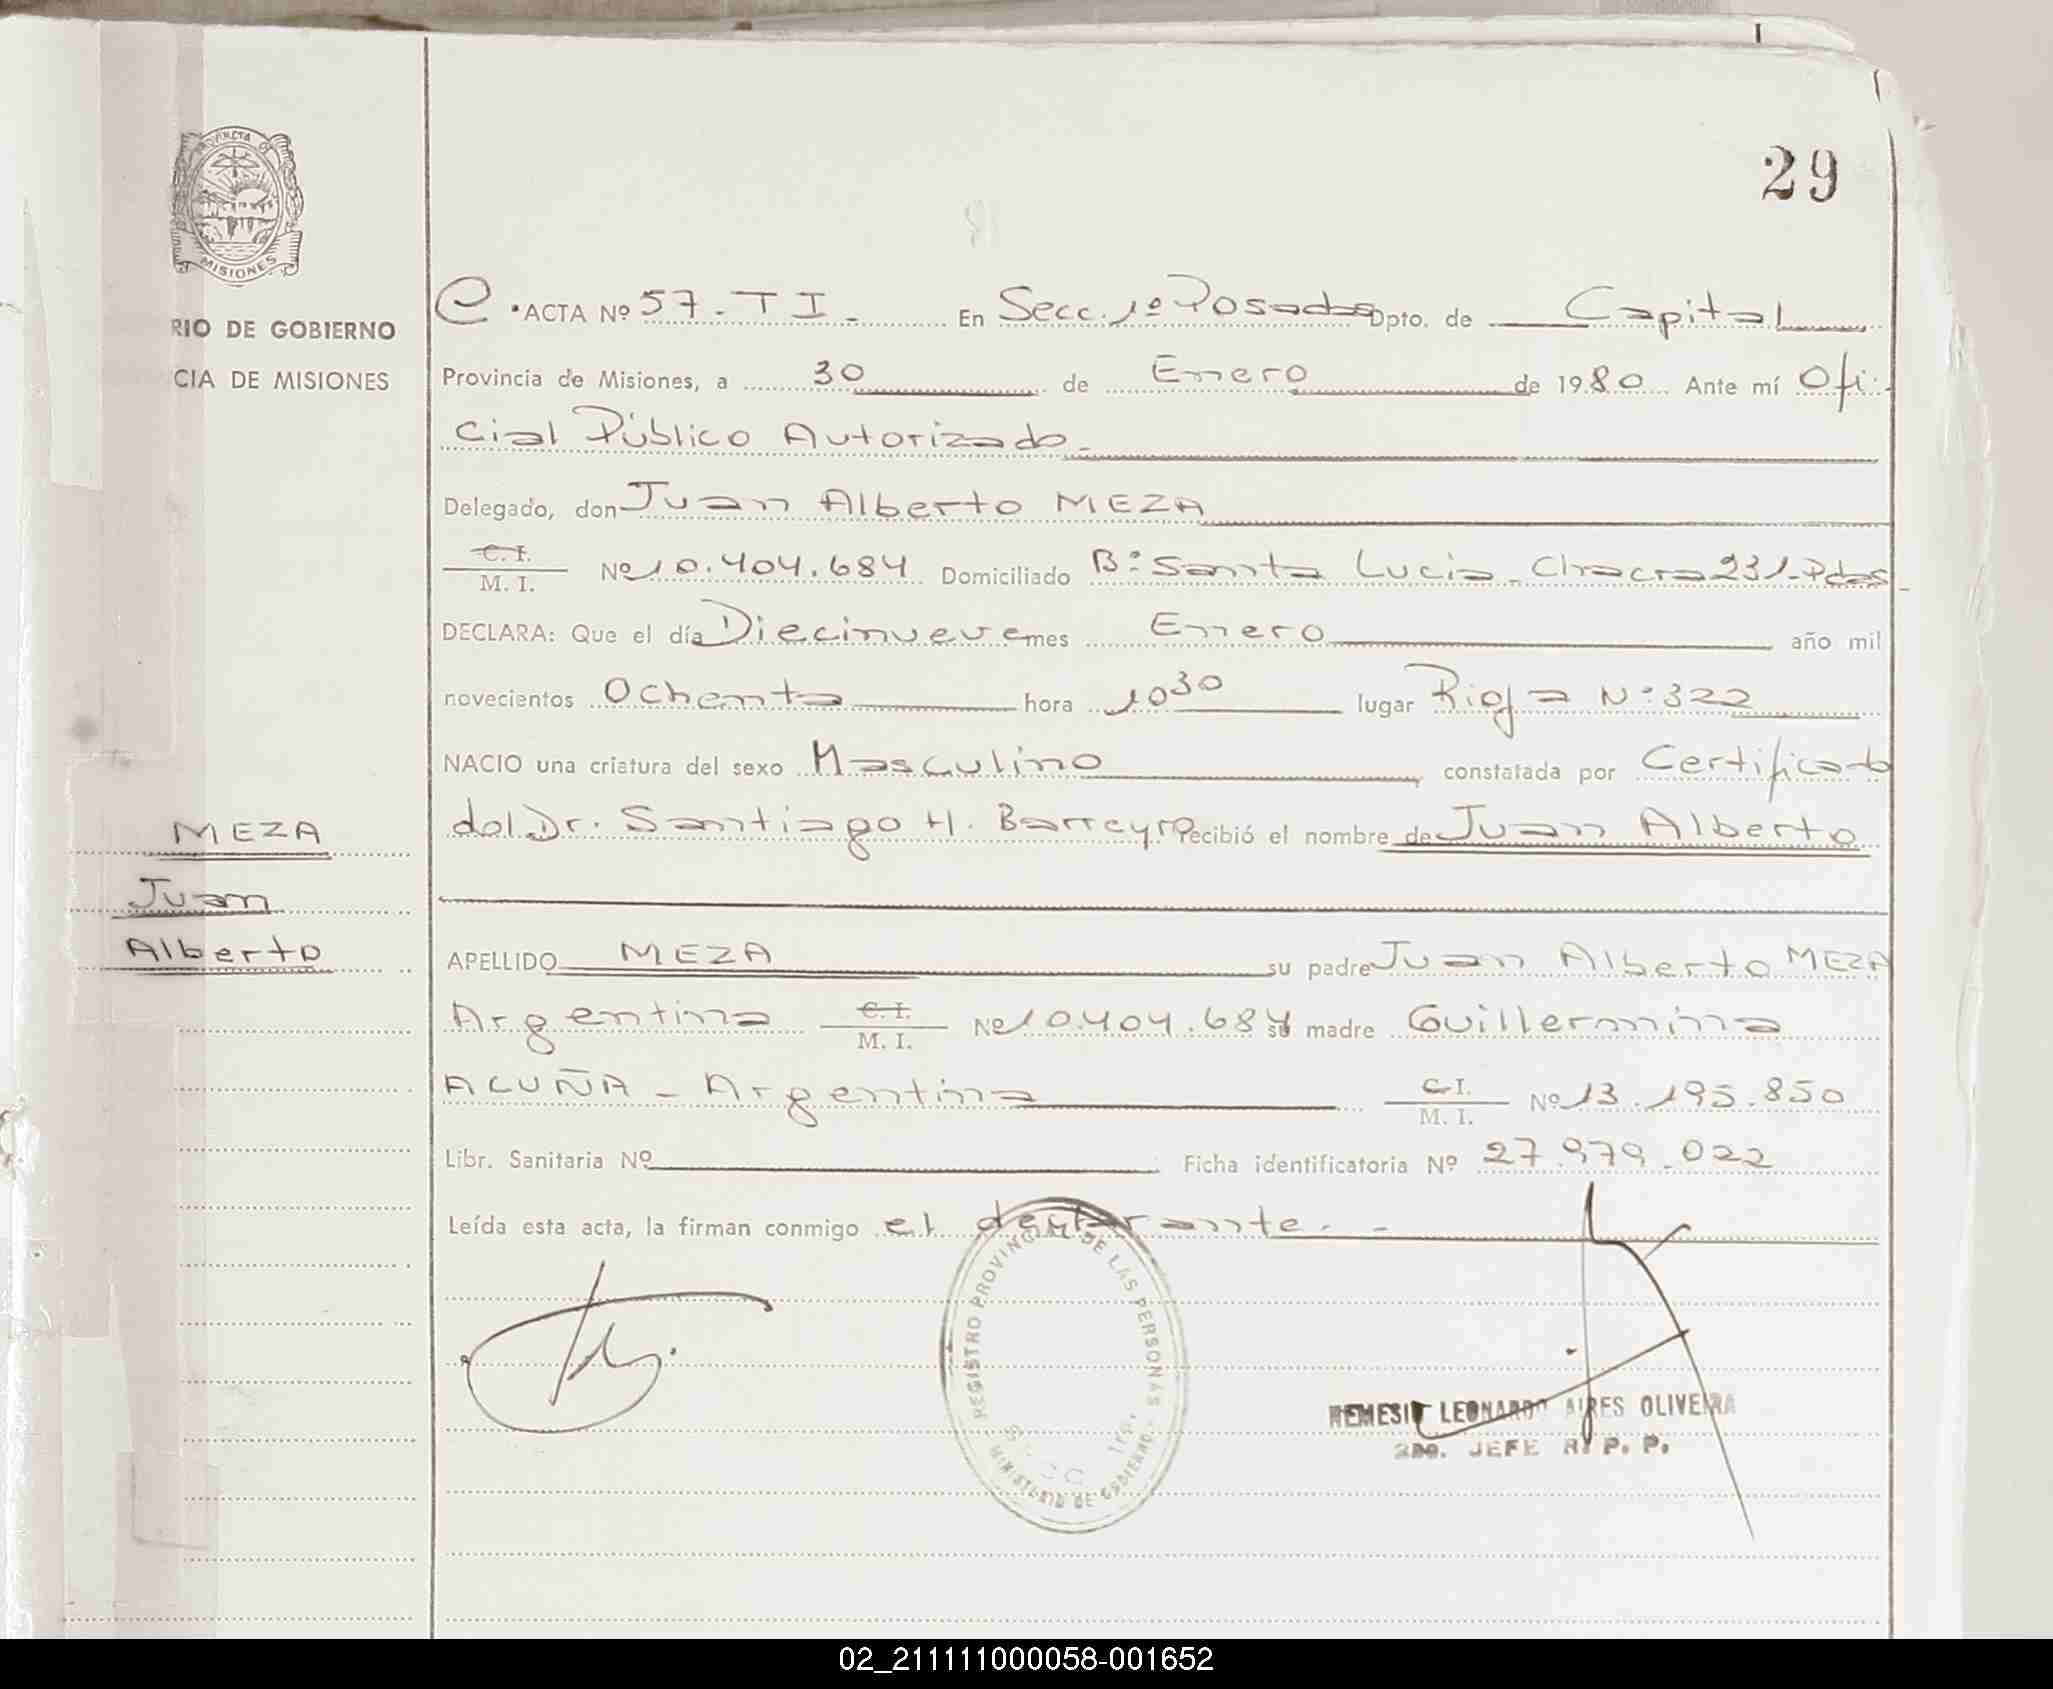 29
PROVINCIA DE
MISIONES
RIO DE GOBIERNO
CIA DE MISIONES
ACTA Nº 57 - T I - En Secc. 1º Posadas Dpto. de Capital
Provincia de Misiones, a 30 de Enero de 1980 Ante mí Ofi-
cial Público Autorizado -
Delegado, don Juan Alberto MEZA
C. I.
M. I. Nº 10.404.684 Domiciliado Bº Santa Lucia - Chacra 231 - Pdas -
DECLARA: Que el día Diecinueve mes Enero año mil
novecientos Ochenta hora 10 30 lugar Rioja Nº 322
NACIO una criatura del sexo Masculino constatada por Certificado
del Dr. Santiago H. Barreyro recibió el nombre de Juan Alberto
MEZA
Juan
Alberto
APELLIDO MEZA su padre Juan Alberto MEZA
Argentina C. I.
M. I. Nº 10.404.684 su madre Guillermina
ACUÑA - Argentina C. I.
M. I. Nº 13.195.850
Libr. Sanitaria Nº Ficha identificatoria Nº 27.979.022
Leída esta acta, la firman conmigo el declarante. -
REGISTRO PROVINCIAL DE LAS PERSONAS
MINISTERIO DE GOBIERNO
NEMESIO LEONARDO AIRES OLIVEIRA
2DO. JEFE R. P. P.
02_211111000058-001652